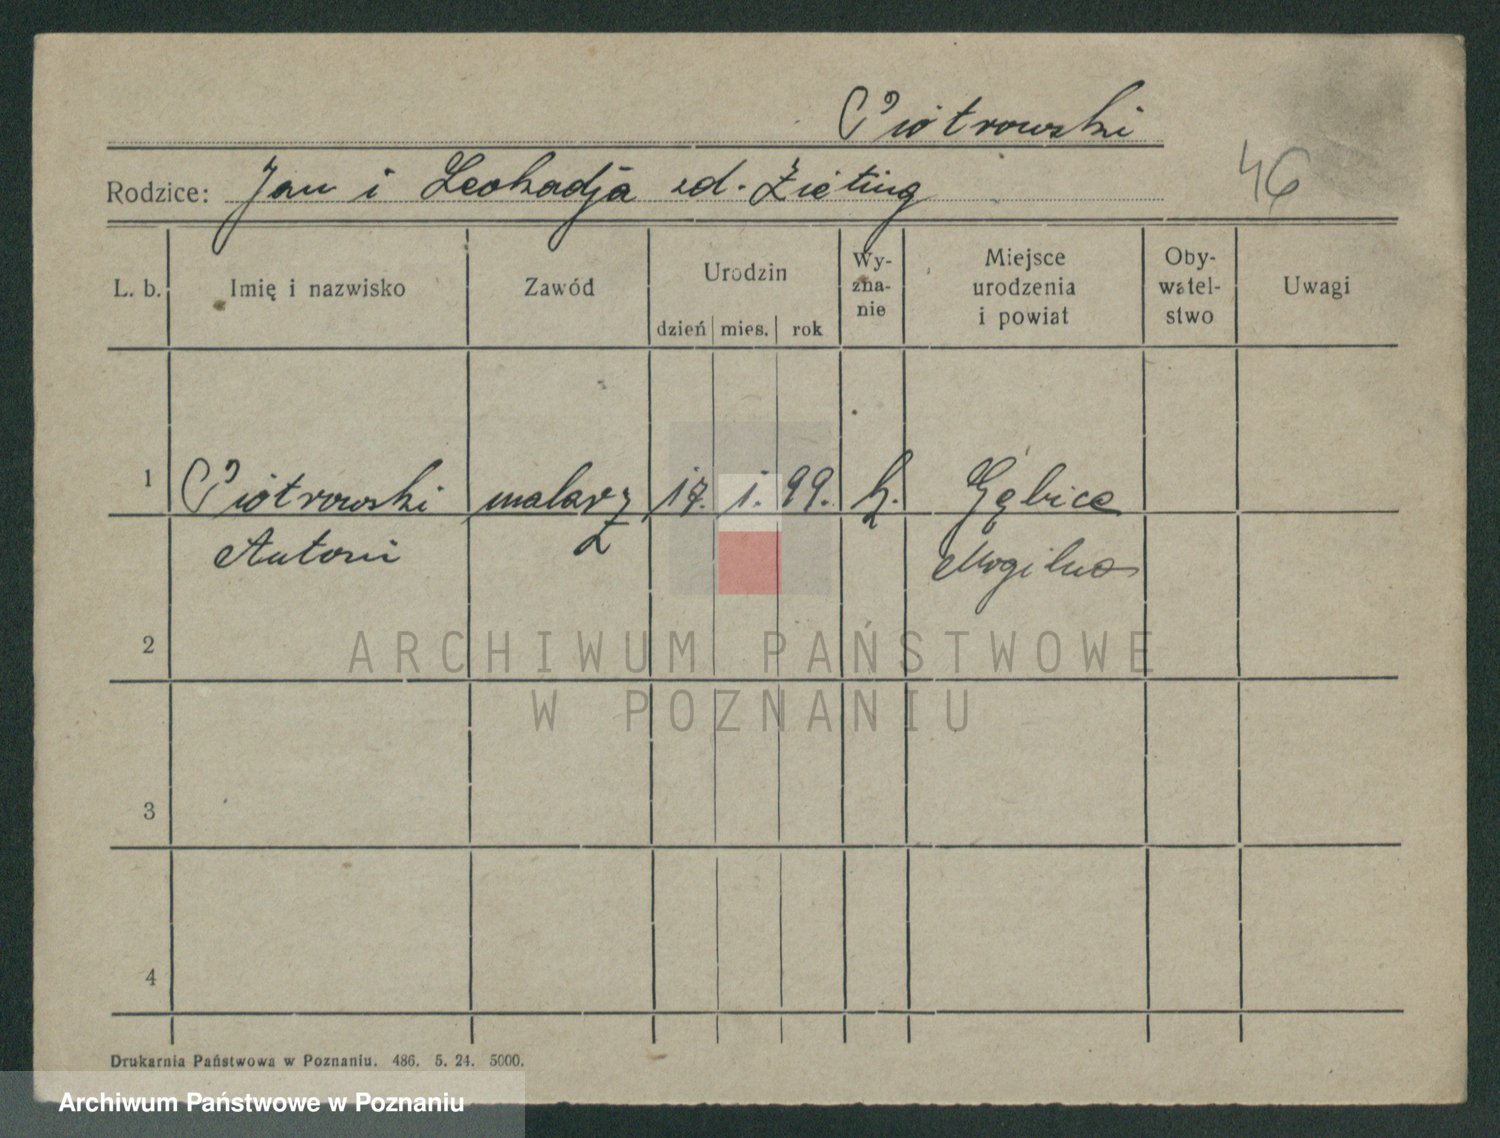 Piotrowski
46
Rodzice: Jan i Leokadja zd. Zieting
L. b.
Imię i nazwisko
Zawód
Urodzin
dzień mies. rok
Wy-
zna-
nie
Miejsce
urodzenia
i powiat
Oby-
watel-
stwo
Uwagi
1 Piotrowski malarz 17. 1. 99. k. Gębice
Antoni Mogilno
2
ARCHIWUM PAŃSTWOWE
W POZNANIU
3
4
Drukarnia Państwowa w Poznaniu. 486. 5. 24. 5000.
Archiwum Państwowe w Poznaniu